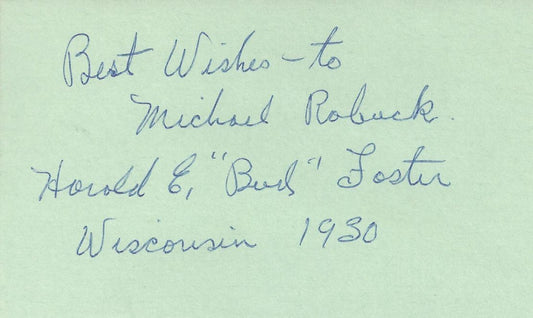 Best Wishes - to
Michael Robuck.
Harold E, "Bud" Foster
Wisconsin 1930